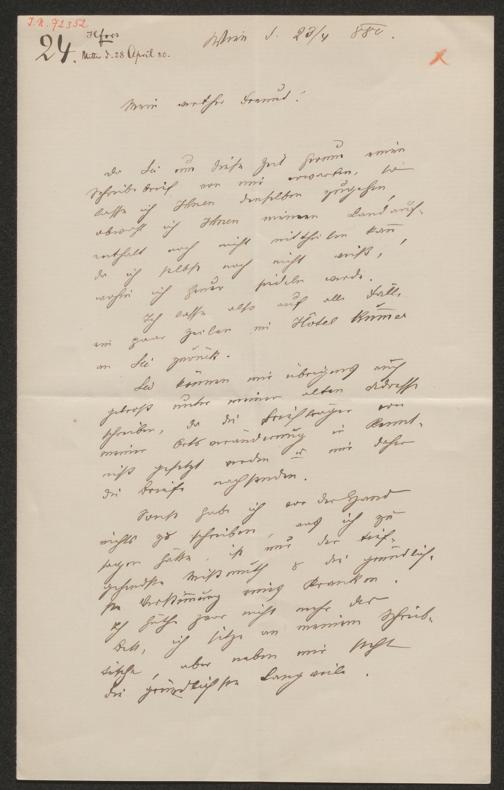 I.N. 92352
24.
Mttw. d. 28 April 80.
Wien d. 23/4 880.
Mein werther Freund!
Da Sie um diese Zeit herum einen
Schreibebrief von mir erwarten, so
lasse ich Ihnen denselben zugehen,
obwohl ich Ihnen meinen Landauf-
enthalt noch nicht mittheilen kann,
da ich selbst noch nicht weiß,
wohin ich heuer siedeln werde.
Ich lasse also auf alle Fälle
ein paar Zeilen im Hôtel
an Sie zurück.
Sie können mir übrigens auch
getrost unter meiner alten Adresse
schreiben, da die Briefträger von
meiner Ortsveränderung in Kennt-
niß gesetzt werden u mir daher
die Briefe nachsenden.
Sonst habe ich vor der Hand
nichts zu schreiben, was ich zu
sagen hätte ist nur der tief-
gehendste Mißmuth & die gründlich-
ste Verstimmung eines Kranken.
Ich hüthe zwar nicht mehr das
Bett, ich sitze an meinem Schreib-
tische, aber neben mir steht
die gründlichste Langweile.